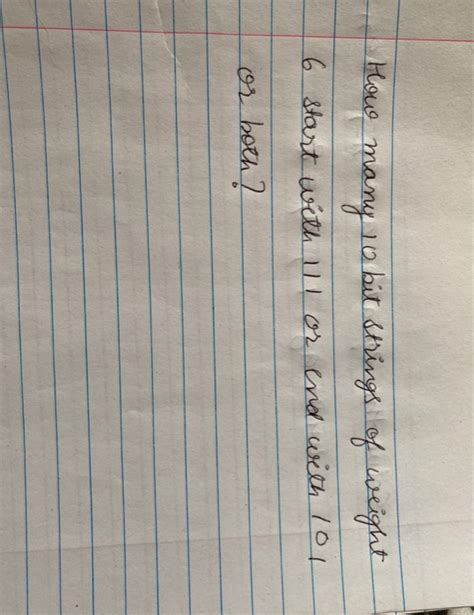 How many 10 bit strings of weight
6 start with 111 or end with 101
or both?